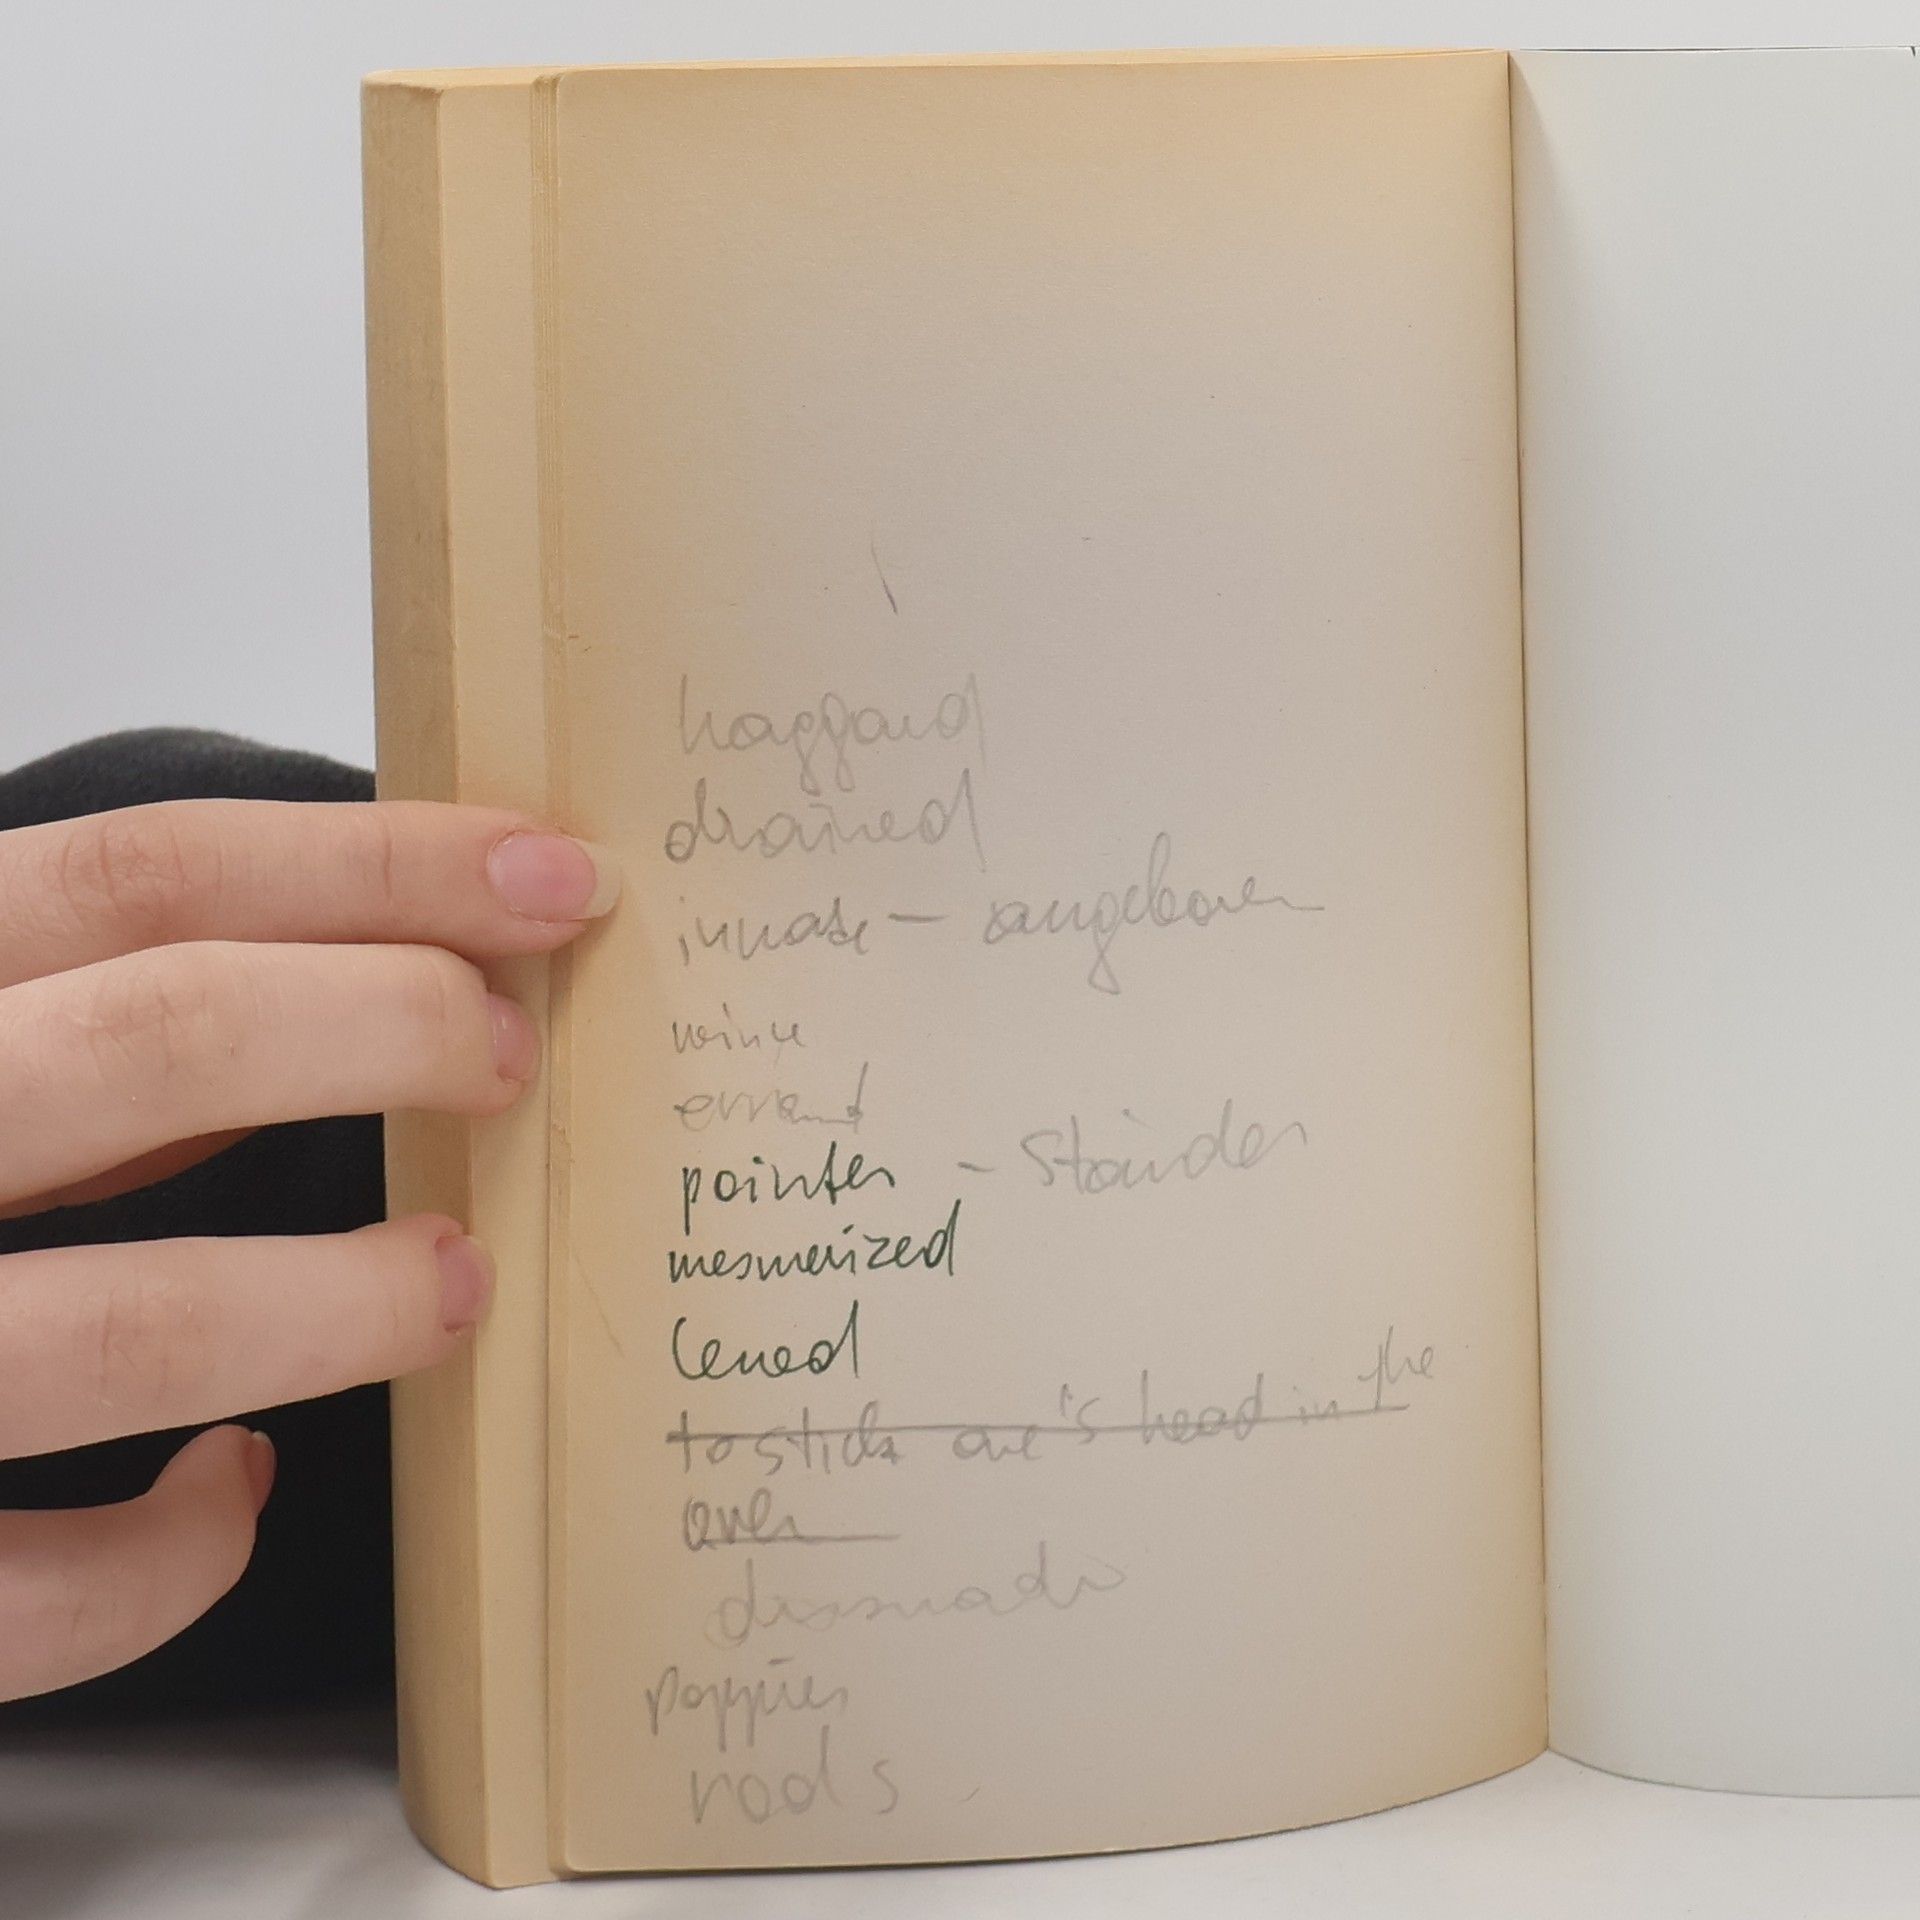 haggard
drained
innate - angeboren
wince
errand
pointer - Ständer
mesmerized
to stick one's head in the
oven
poppies
rods